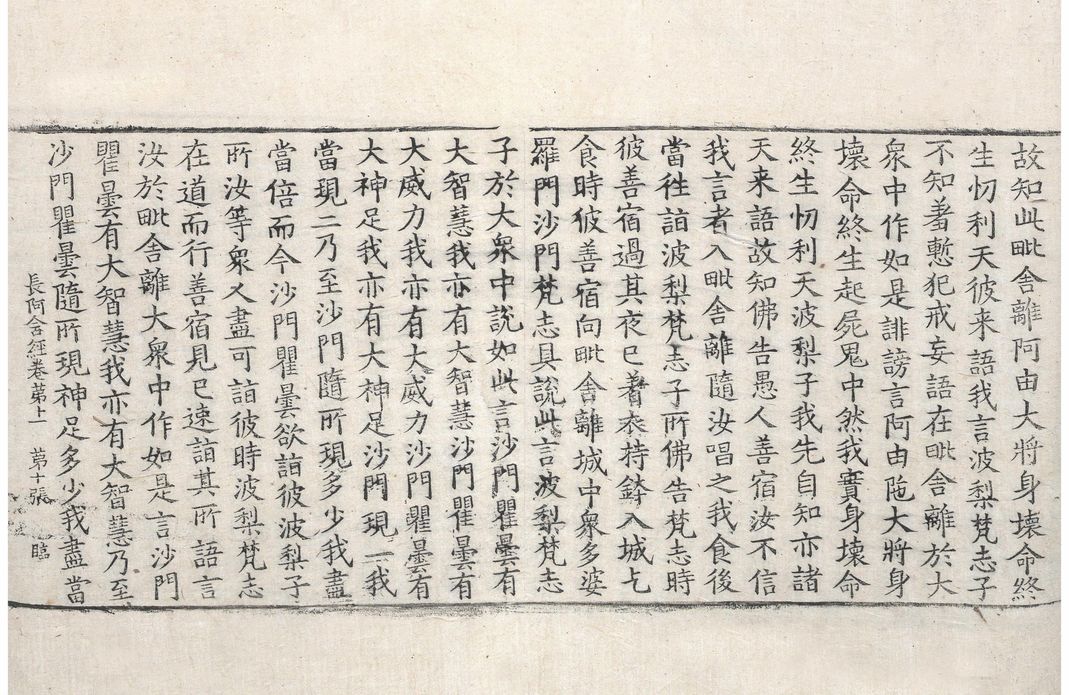 故知此毗舍離阿由大將身壞命終
生忉利天彼来語我言波梨梵志子
不知羞慙犯戒妄語在毗舍離於大
衆中作如是誹謗言阿由陁大將身
壞命終生起屍鬼中然我實身壞命
終生忉利天波梨子我先自知亦諸
天来語故知佛告愚人善宿汝不信
我言者入毗舍離隨汝唱之我食後
當徃詣波梨梵志子所佛告梵志時
彼善宿過其夜已着衣持鉢入城乞
食時彼善宿向毗舍離城中衆多婆
羅門沙門梵志具說此言波梨梵志
子於大衆中說如此言沙門瞿曇有
大智慧我亦有大智慧沙門瞿曇有
大威力我亦有大威力沙門瞿曇有
大神足我亦有大神足沙門現一我
當現二乃至沙門隨所現多少我盡
當倍而今沙門瞿曇欲詣彼波梨子
所汝等衆人盡可詣彼時波梨梵志
在道而行善宿見已速詣其所語言
汝於毗舍離大衆中作如是言沙門
瞿曇有大智慧我亦有大智慧乃至
沙門瞿曇隨所現神足多少我盡當
長阿含經卷第十一 第十張 臨